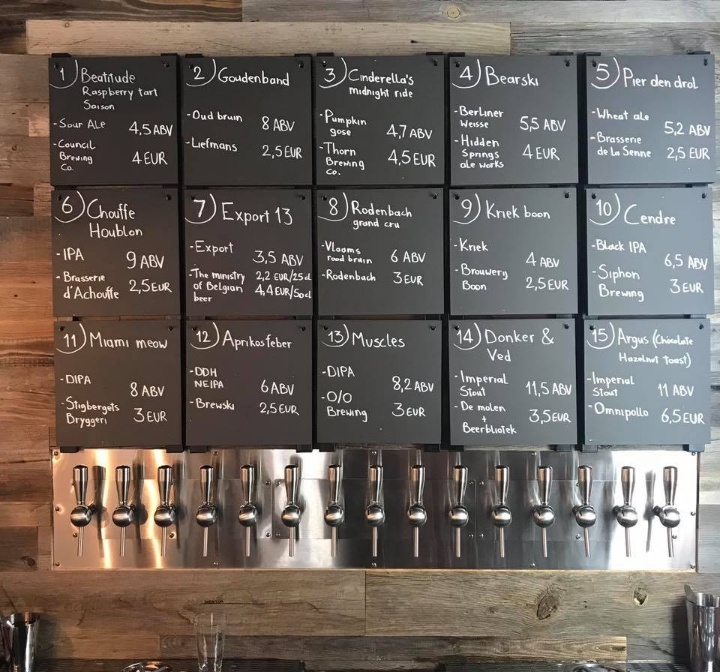 1) Beatitude
Raspberry tart
Saison
- Sour Ale 4,5 ABV
- Council
Brewing
Co. 4 EUR
2) Goudenband
- Oud bruin 8 ABV
- Liefmans 2,5 EUR
3) Cinderella's
midnight ride
- Pumpkin
gose 4,7 ABV
- Thorn
Brewing
Co. 4,5 EUR
4) Bearski
- Berliner
Weisse 5,5 ABV
- Hidden
Springs
ale works 4 EUR
5) Pier den drol
- Wheat ale 5,2 ABV
- Brasserie
de la Senne 2,5 EUR
6) Chouffe
Houblon
- IPA 9 ABV
- Brasserie
d'Achouffe 2,5 EUR
7) Export 13
- Export 3,5 ABV
- The ministry 2,2 EUR/25cl
of Belgian 4,4 EUR/50cl
beer
8) Rodenbach
grand cru
- Vlaams
rood bruin 6 ABV
- Rodenbach 3 EUR
9) Kriek boon
- Kriek 4 ABV
- Brouwery
Boon 2,5 EUR
10) Cendre
- Black IPA 6,5 ABV
- Siphon
Brewing 3 EUR
11) Miami meow
- DIPA 8 ABV
- Stigbergets
Bryggeri 3 EUR
12) Aprikosfeber
- DDH
NEIPA 6 ABV
- Brewski 2,5 EUR
13) Muscles
- DIPA 8,2 ABV
- O/O
Brewing 3 EUR
14) Donker &
Ved
- Imperial
Stout 11,5 ABV
- De molen
+
Beerbliotek 3,5 EUR
15) Argus (Chocolate
Hazelnut Toast)
- Imperial
Stout 11 ABV
- Omnipollo 6,5 EUR